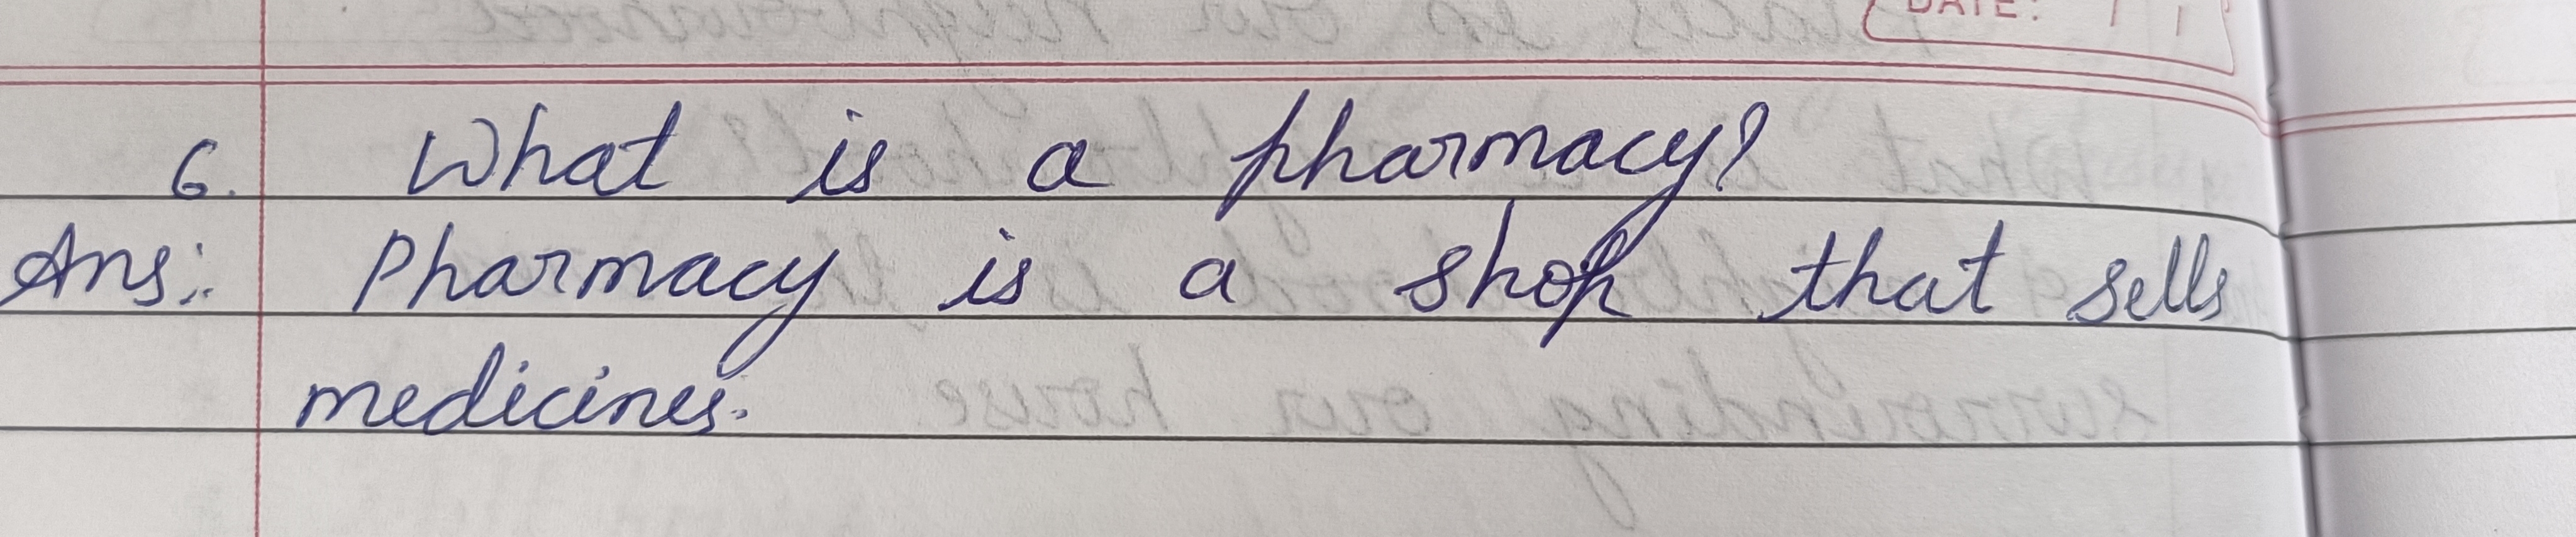 DATE: / /
6. What is a pharmacy?
Ans:. Pharmacy is a shop that sells
medicines.